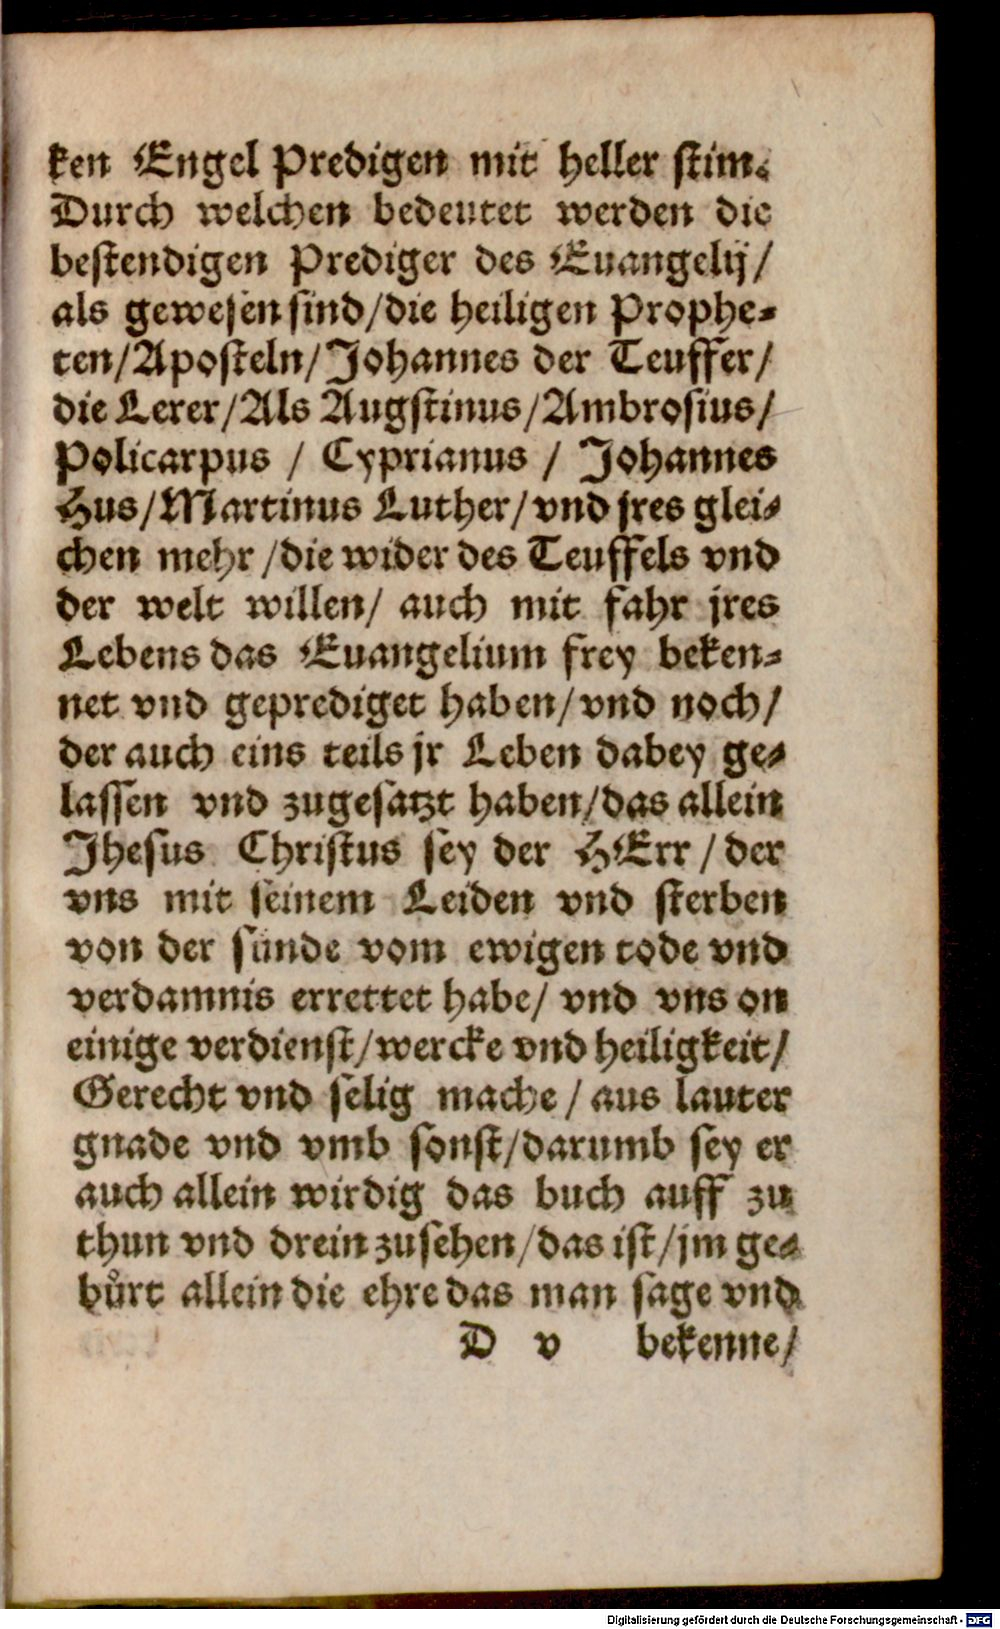 ken Engel Predigen mit heller stim.
Durch welchen bedeutet werden die
bestendigen Prediger des Euangelij/
als gewesen sind/die heiligen Prophe-
ten/Aposteln/Johannes der Teuffer/
die Lerer/Als Augstinus/Ambrosius/
Policarpus / Cyprianus / Johannes
Hus/Martinus Luther/vnd jres glei-
chen mehr/die wider des Teuffels vnd
der welt willen/ auch mit fahr jres
Lebens das Euangelium frey beken-
net vnd geprediget haben/vnd noch/
der auch eins teils jr Leben dabey ge-
lassen vnd zugesatzt haben/das allein
Jhesus Christus sey der HErr/der
vns mit seinem Leiden vnd sterben
von der sünde vom ewigen tode vnd
verdamnis errettet habe/ vnd vns on
einige verdienst/wercke vnd heiligkeit/
Gerecht vnd selig mache/aus lauter
gnade vnd vmb sonst/darumb sey er
auch allein wirdig das buch auff zu
thun vnd drein zusehen/das ist/jm ge-
bůrt allein die ehre das man sage vnd
D v bekenne/
Digitalisierung gefördert durch die Deutsche Forschungsgemeinschaft - DFG